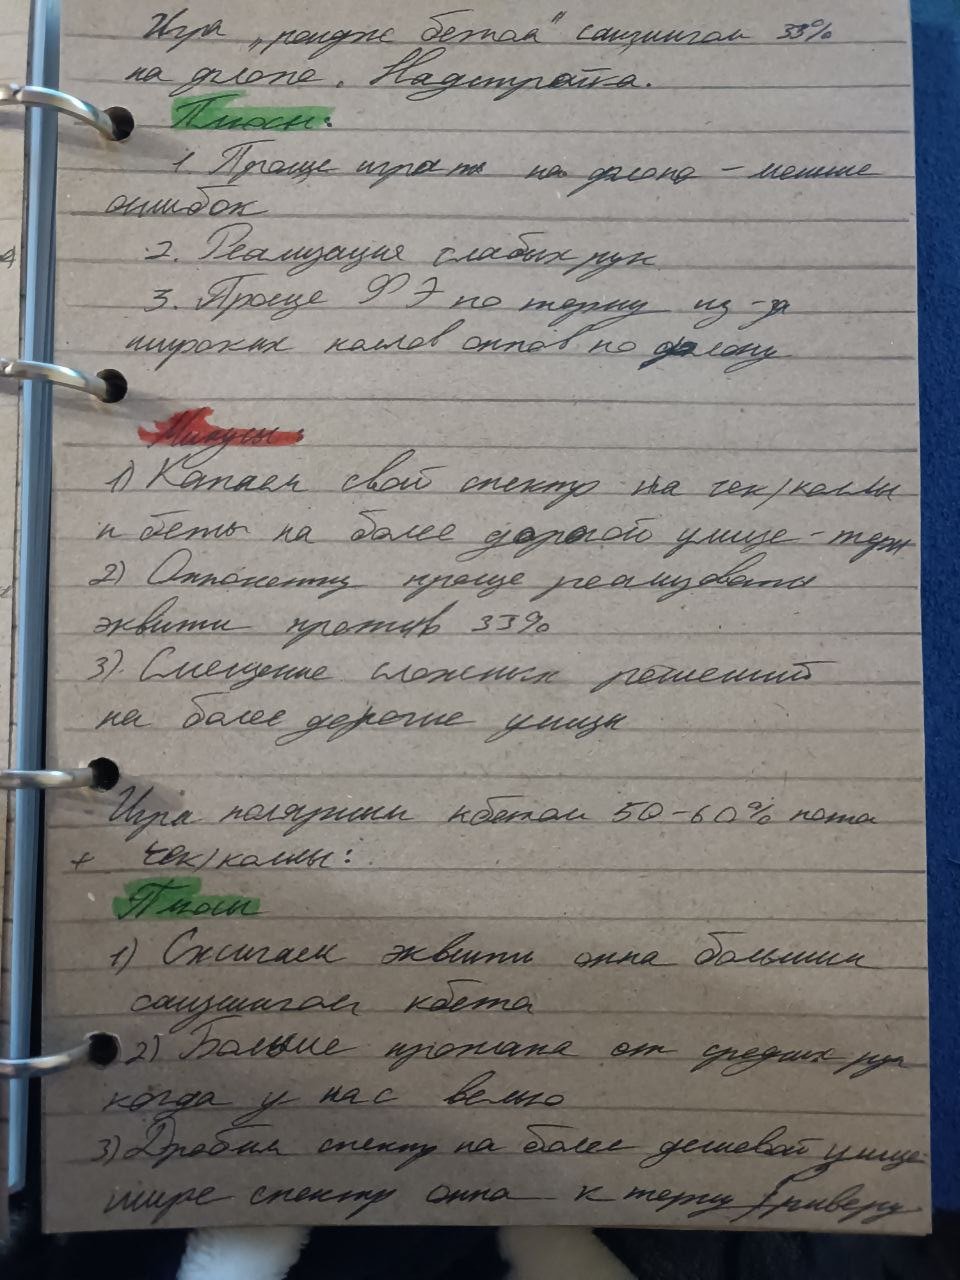 Игра „рендж бетом" сайзингом 33%
на флопе. Надстройка.
Плюсы:
1. Проще играть на флопе – меньше
ошибок
2. Реализация слабых рук
3. Проще ФЭ по терну из-за
широких коллов оппов по флопу
Минусы:
1) Капаем свой спектр на чек/коллы
и беты на более дорогой улице – терн
2) Оппоненту проще реализовать
эквити против 33%
3) Смещение сложных решений
на более дорогие улицы
Игра полярным кбетом 50-60% пота
+ чек/коллы:
Плюсы
1) Сжигаем эквити оппа большим
сайзингом кбета
2) Больше проплата от средних рук
когда у нас велью
3) Дробим спектр на более дешевой улице
шире спектр оппа к терну/риверу